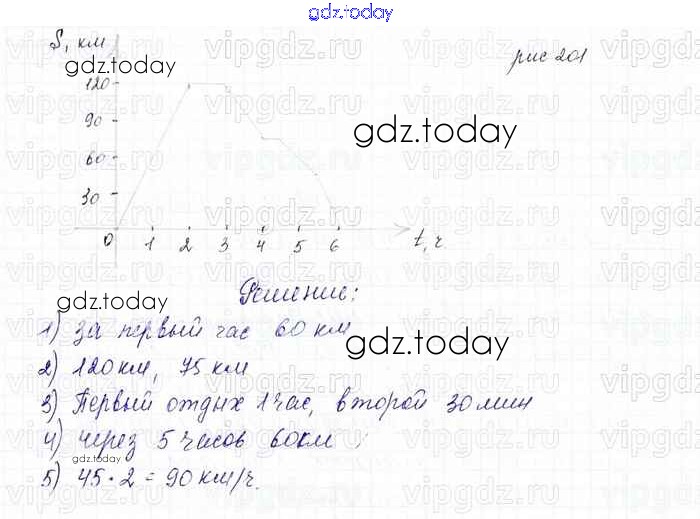 gdz.today
S, км
gdz.today
рис 201
120
90
gdz.today
60
30
0 1 2 3 4 5 6 t, ч
Решение:
gdz.today
1) за первый час 60 км
gdz.today
2) 120 км, 75 км
3) Первый отдых 1 час, второй 30 мин
4) через 5 часов 60 км
gdz.today
5) 45 · 2 = 90 км/ч.